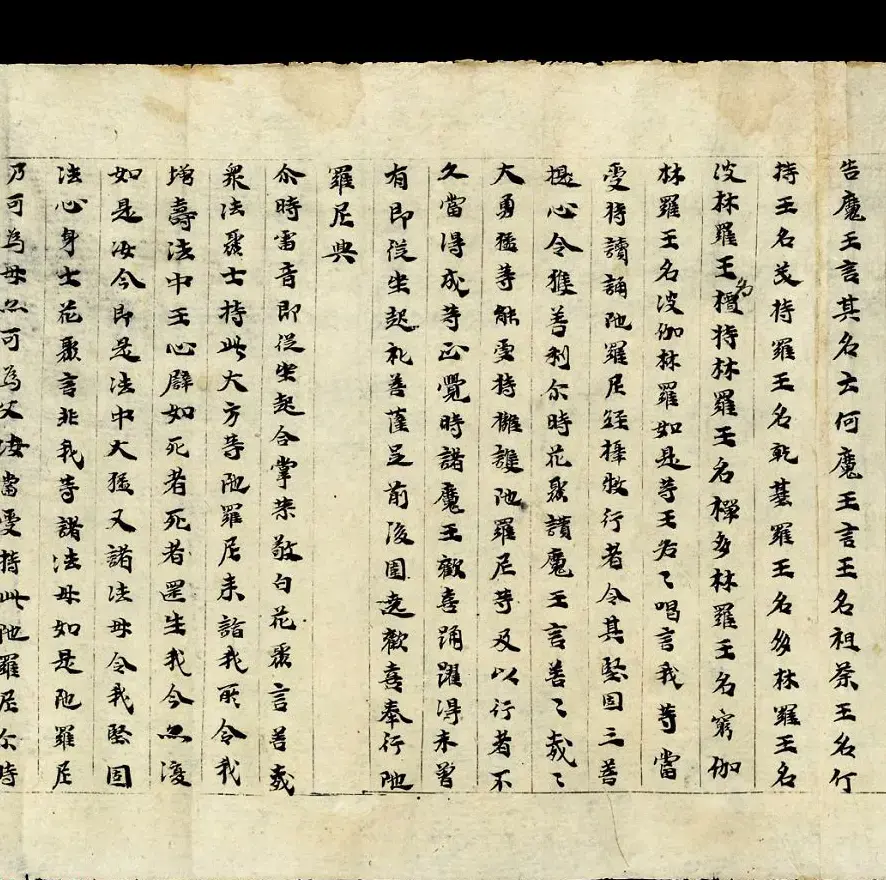 告魔王言其名云何魔王言王名祖荼王名佇
持王名茂持羅王名乾基羅王名多林羅王名
波林羅王名檀持林羅王名檡多林羅王名窮伽
林羅王名波伽林羅如是等王各〻唱言我等當
受持讀誦陁羅尼經攝救行者令其堅固三菩
提心令獲善利尒時花聚讃魔王言善〻哉〻
大勇猛等能受持擁護陁羅尼等及以行者不
久當得成等正覺時諸魔王歡喜踊躍得未曾
有即從坐起礼菩薩足前後圍遶歡喜奉行陁
羅尼典
尒時雷音即從坐起合掌恭敬白花聚言善哉
衆法聚士持此大方等陁羅尼来詣我所令我
增壽法中王心辟如死者死者還生我今無復
如是汝今即是法中大猛又諸法母令我堅固
法心身士花聚言非我等諸法母如是陁羅尼
乃可為母無可為父汝當受持此陁羅尼尒時